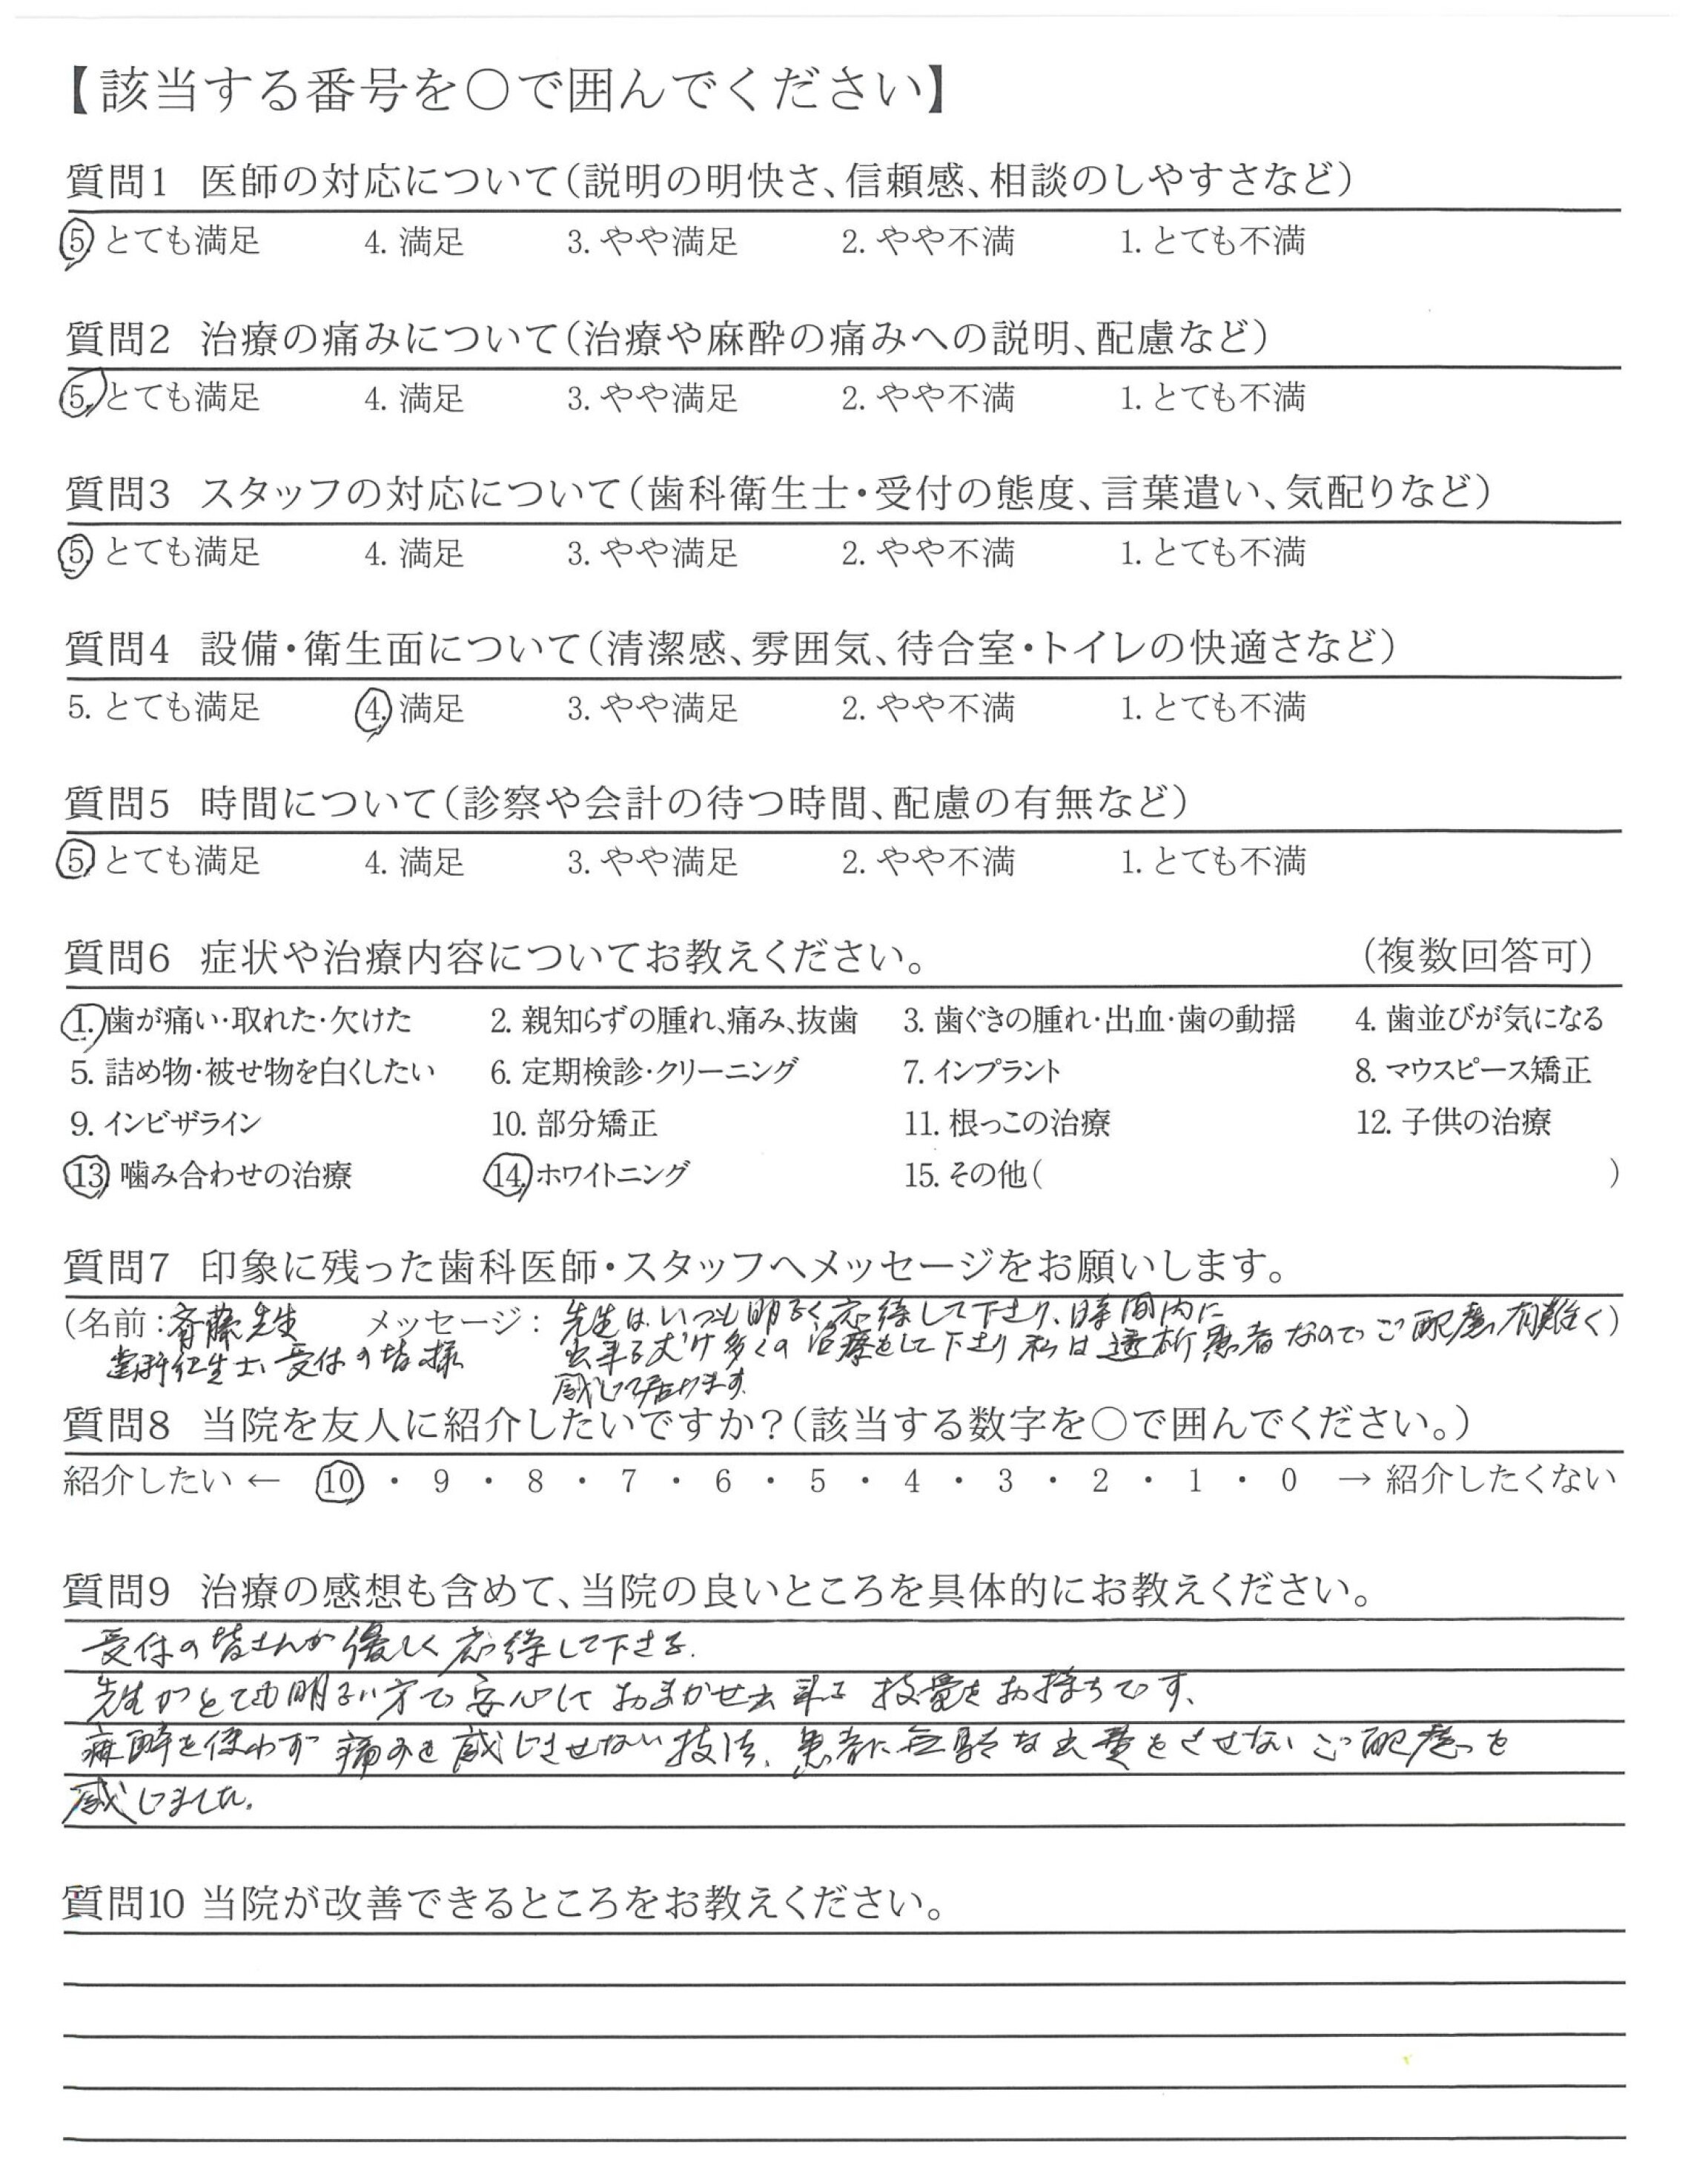 【該当する番号を○で囲んでください】
質問1 医師の対応について(説明の明快さ、信頼感、相談のしやすさなど)
5. とても満足 4. 満足 3. やや満足 2. やや不満 1. とても不満
質問2 治療の痛みについて(治療や麻酔の痛みへの説明、配慮など)
5. とても満足 4. 満足 3. やや満足 2. やや不満 1. とても不満
質問3 スタッフの対応について(歯科衛生士・受付の態度、言葉遣い、気配りなど)
5. とても満足 4. 満足 3. やや満足 2. やや不満 1. とても不満
質問4 設備・衛生面について(清潔感、雰囲気、待合室・トイレの快適さなど)
5. とても満足 4. 満足 3. やや満足 2. やや不満 1. とても不満
質問5 時間について(診察や会計の待つ時間、配慮の有無など)
5. とても満足 4. 満足 3. やや満足 2. やや不満 1. とても不満
質問6 症状や治療内容についてお教えください。 (複数回答可)
1. 歯が痛い・取れた・欠けた 2. 親知らずの腫れ、痛み、抜歯 3. 歯ぐきの腫れ・出血・歯の動揺 4. 歯並びが気になる
5. 詰め物・被せ物を白くしたい 6. 定期検診・クリーニング 7. インプラント 8. マウスピース矯正
9. インビザライン 10. 部分矯正 11. 根っこの治療 12. 子供の治療
13. 噛み合わせの治療 14. ホワイトニング 15. その他( )
質問7 印象に残った歯科医師・スタッフへメッセージをお願いします。
(名前:斉藤先生 メッセージ: 先生はいつも明るく応待して下さり、時間内に
歯科衛生士、受付の皆様 出来る丈け多くの治療をして下さり私は透析患者なのでご配慮有難く)
感じて居ります。
質問8 当院を友人に紹介したいですか?(該当する数字を○で囲んでください。)
紹介したい ← 10 ・ 9 ・ 8 ・ 7 ・ 6 ・ 5 ・ 4 ・ 3 ・ 2 ・ 1 ・ 0 → 紹介したくない
質問9 治療の感想も含めて、当院の良いところを具体的にお教えください。
受付の皆さんが優しく応待して下さる。
先生がとても明るい方で安心しておまかせ出来る技量をお持ちです、
麻酔を使わず痛みを感じさせない技法、患者に無駄な出費をさせないご配慮を
感じました。
質問10 当院が改善できるところをお教えください。